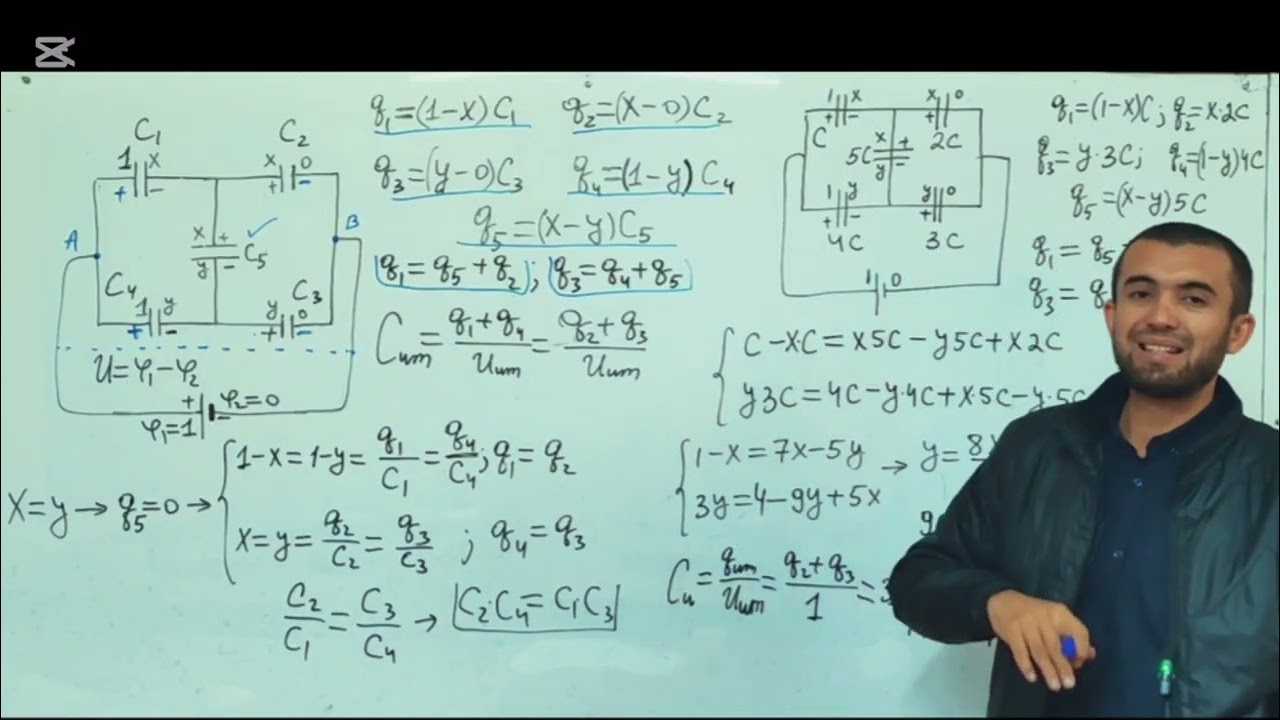 C₁
C₂
1 x
x 0
+ -
+ -
A
B
x +
y -
C₅
C₄
C₃
1 y
y 0
+ -
+ -
U=φ₁-φ₂
+
φ₂=0
φ₁=1
-
q₁=(1-x)C₁ q₂=(x-0)C₂
q₃=(y-0)C₃ q₄=(1-y)C₄
q₅=(x-y)C₅
q₁=q₅+q₂; q₃=q₄+q₅
Cum=(q₁+q₄)/Uum=(q₂+q₃)/Uum
x=y→q₅=0→
1-x=1-y=q₁/C₁=q₄/C₄; q₁=q₂
x=y=q₂/C₂=q₃/C₃; q₄=q₃
C₂/C₁=C₃/C₄→ C₂·C₄=C₁C₃
1 x
x 0
+ -
+
C
2C
5C
x +
y -
1 y
y 0
+ -
+
4C
3C
1 0
q₁=(1-x)C; q₂=x·2C
q₃=y·3C; q₄=(1-y)4C
q₅=(x-y)5C
q₁=q₅
q₃=
C-xC=x5C-y5C+x2C
y3C=4C-y·4C+x·5C-y·5C
1-x=7x-5y → y=8
3y=4-9y+5x
Cu=qum/Uum=(q₂+q₃)/1=3